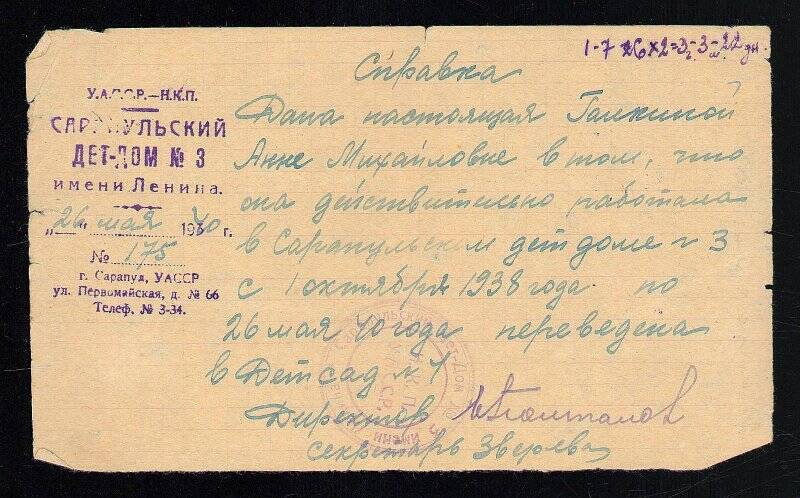 1-7 26×2=3-3-22 дн.
Справка
У.А.С.С.Р.—Н.К.П.
САРАПУЛЬСКИЙ
ДЕТ-ДОМ № 3
имени Ленина.
„26" мая 1940 г.
№ 175
г. Сарапул, УАССР
ул. Первомайская, д. № 66
Телеф. № 3-34.
Дана настоящая Галкиной
Анне Михайловне в том, что
она действительно работала
в Сарапульском дет доме № 3
с 1 октября 1938 года по
26 мая 40 года переведена
в Детсад № 1
Директор
секретарь Зверева